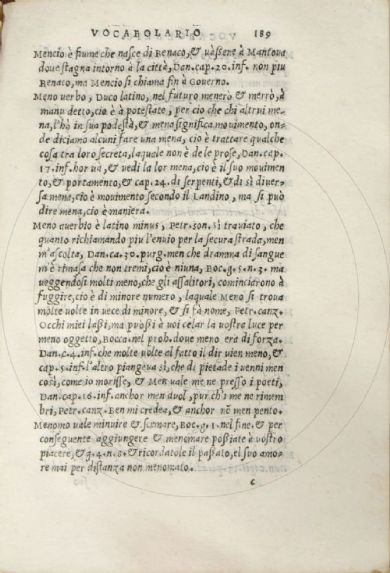 VOCABOLARIO 189
Mencio è fiume che nasce di Benaco, & uassene à Mantoua
doue stagna intorno à la città, Dan. cap. 20. inf. non piu
Benaco, ma Mencio si chiama fin à Gouerno.
Meno uerbo, Duco latino, nel futuro menerò & merrò, à
manu detto, cio è à potestate, per cio che chi altrui me-
na, l'hò in sua podestà, & mena significa mouimento, on-
de diciamo alcuni fare una mena, cio è trattare qualche
cosa tra loro secreta, laquale non è de le prose, Dan. cap.
17. inf. hor uà, & uedi la lor mena, cio è il suo mouimen
to, & portamento, & cap. 24. di serpenti, & di sì diuer-
sa mena, cio è mouimento secondo il Landino, ma si può
dire mena, cio è maniera.
Meno auerbio è latino minus, Petr. son. Sì trauiato, che
quanto richiamando piu l'enuio per la secura strada, men
m'ascolta, Dan. ca. 30. purg. men che dramma di sangue
m'è rimasa che non tremi, cio è niuna, Boc. g. 5. n. 3. ma
ueggendosi molti meno, che gli assalitori, cominciarono à
fuggire, cio è di minore numero, laquale Meno si troua
molte uolte in uece di minore, & si fà nome, Petr. canz.
Occhi miei lassi, ma puossi à uoi celar la uostra luce per
meno oggetto, Bocca. nel proh. doue meno era di forza.
Dan. c. 4. inf. che molte uolte al fatto il dir uien meno, &
cap. 5. inf. l'altro piangeua sì, che di pietade i uenni men
così, come io morisse, & Men uale me ne presso i poeti,
Dan. cap. 16. inf. anchor men duol, pur ch'i me ne rimem
bri, Petr. canz. Ben mi credea, & anchor nō men pento.
Menomo uale minuire & scemare, Boc. g. 1. nel fine. & per
conseguente aggiungere & menomare possiate à uostro
piacere, & g. 4. n. 8. & ricordatole il passato, el suo amo-
re mai per distanza non menomato.
c